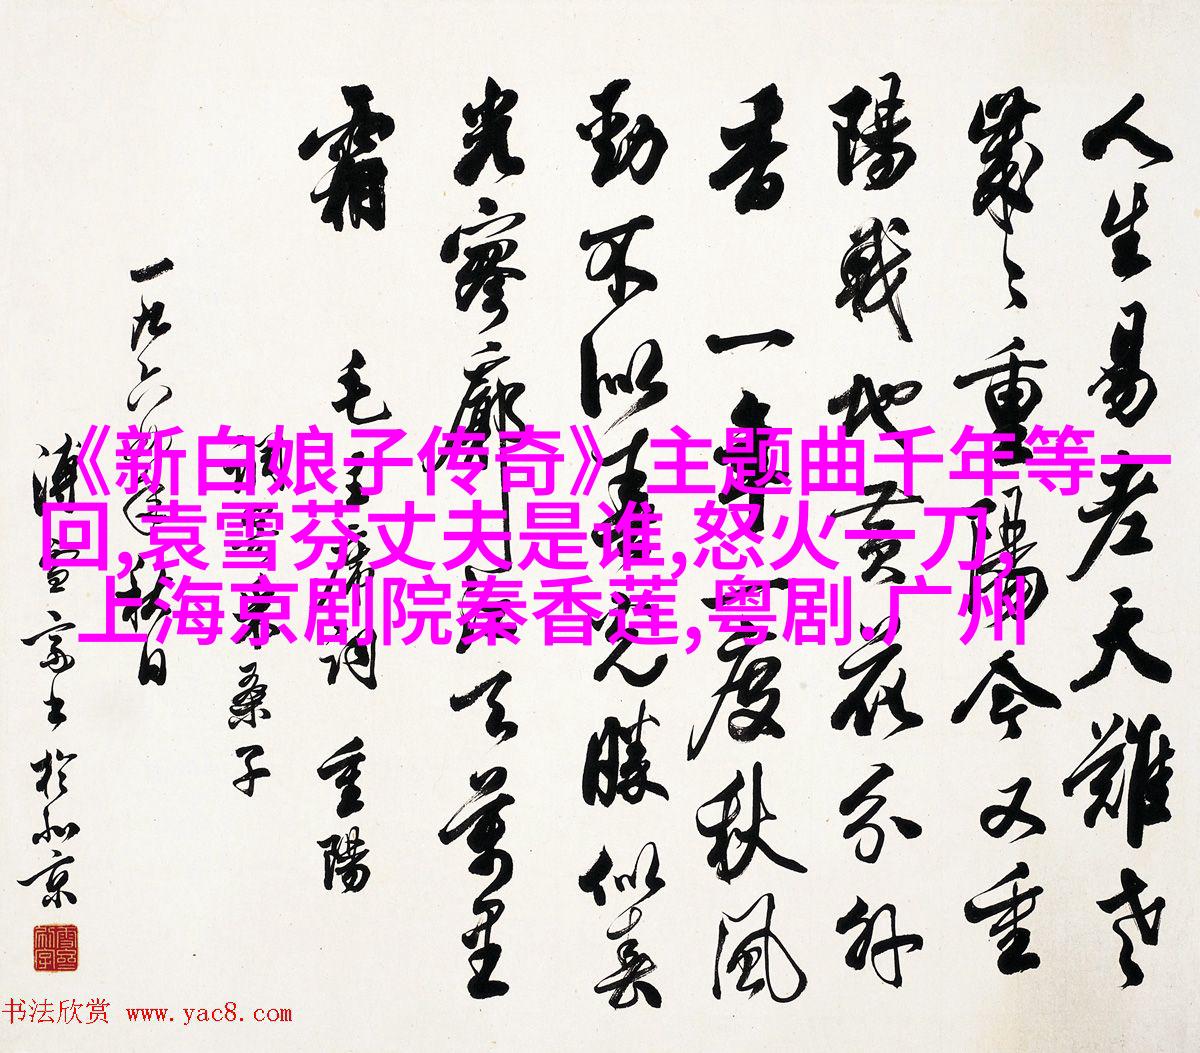 人生易老天難老
歲々重陽今又重
陽戰地黃花分外
香 一年一度秋風
勁不似春光勝似春
光寥廓江天萬里
霜 毛主席詞 重陽
采桑子
一九六年秋日
溥雪齋書於北京
《新白娘子传奇》主题曲千年等一
回,袁雪芬丈夫是谁,怒火一刀,
上海京剧院秦香莲,粤剧.广州
书法欣赏 www.yac8.com